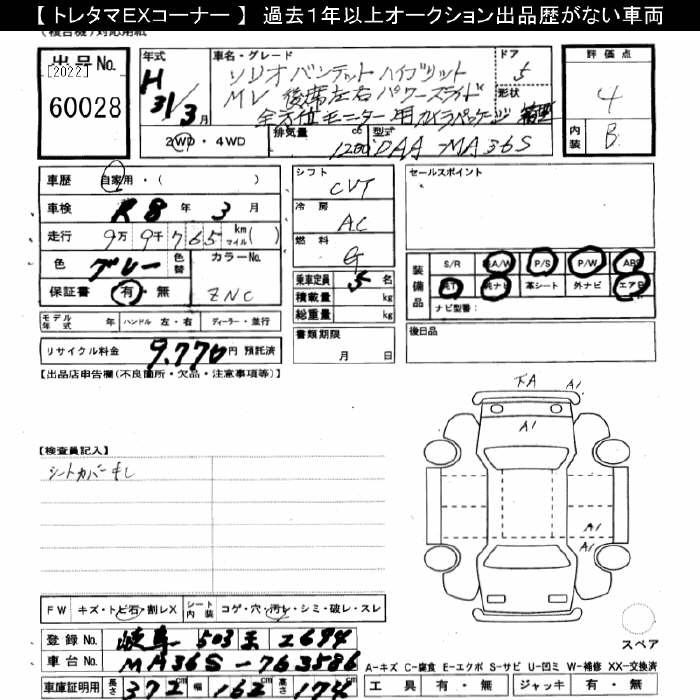 【トレタマEXコーナー】 過去１年以上オークション出品歴がない車両
(複合機)対応用紙
出品No. [2022] 60028
年式 H31/3月
車名・グレード ソリオバンデットハイブリット
MV 後席左右パワースライド
全方位モニター用カメラパッケージ
ドア 5
形状 箱型
評価点 4
内装 B
2WD・4WD
排気量 1200cc
型式 DAA-MA36S
車歴 自家用・( )
車検 R8年 3月
走行 9万9千765 km マイル( )
色 グレー 色替 カラーNo. ZNC
保証書 有・無
シフト CVT
冷房 AC
燃料 G
乗車定員 5名
積載量 kg
総重量 kg
書類期限 月 日
セールスポイント
装備品 S/R A/W P/S P/W ABS
革シート 外ナビ エアB
ナビ型番:
後日品
モデル年式 年 ハンドル 左・右 ディーラー・並行
リサイクル料金 9.770円 預託済
【出品店申告欄(不良箇所・欠品・注意事項等)】
【検査員記入】
シートカバー
下A A1
A1
A1
A1
スペア
FW キズ・トビ石・割レX シート内装 コゲ・穴・汚レ・シミ・破レ・スレ
登録No. 岐阜 503 2694
車台No. MA36S-763586
車庫証明用 長さ 372cm 幅 162cm 高さ 174cm
A-キズ C-腐食 E-エクボ S-サビ U-凹ミ W-補修 XX-交換済
工具 有・無 ジャッキ 有・無